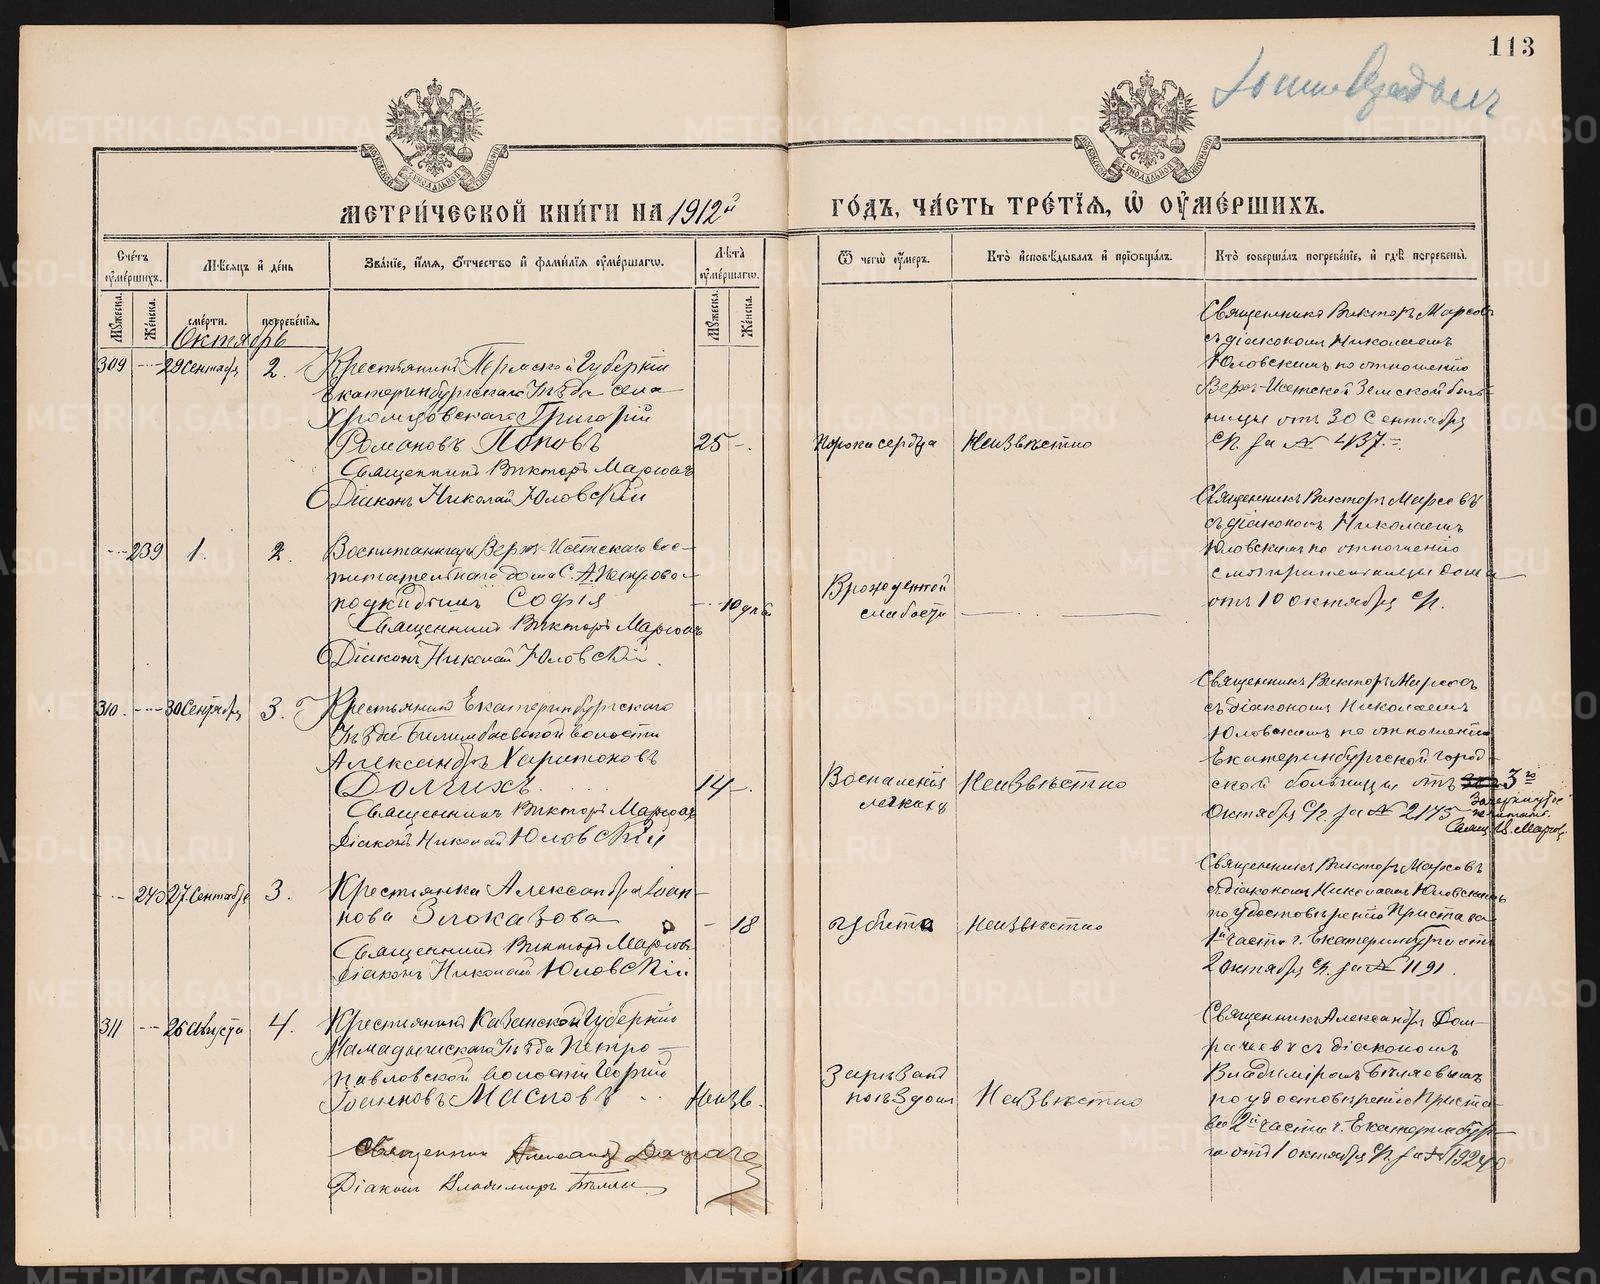 113
МЕТРИ́ЧЕСКОЙ КНИ́ГИ НА 1912й ГО́ДЪ, ЧА́СТЬ ТРЕ́ТІЯ, Ѡ ОУМЕ́РШИХЪ.
Сче́тъ оуме́ршихъ.
Мѣ́сяцъ и де́нь
Зва́ніе, и́мя, о́тчество и фами́лія оуме́ршагѡ.
Лѣ́та оуме́ршагѡ.
Ѿ чегѡ̀ оу́меръ.
Кто̀ исповѣ́дывалъ и приѡбща́лъ.
Кто̀ соверша́лъ погребе́ніе, и гдѣ̀ погребены̀.
Му́жеска.
Же́нска.
сме́рти.
погребе́нія.
Му́жеска.
Же́нска.
Октябрь
309 29 Сентябр 2.
Крестьянинъ Пермской Губерніи
Екатеринбургскаго Уѣзда села
Григорій
Романовъ Поповъ 25
Священникъ Викторъ
Діаконъ Николай Юловскій
Порока сердца
Неизвѣстно
Священникъ Викторъ
съ діакономъ Николаемъ
Юловскимъ по отношенію
Верх-Исетской Земской боль-
ницы отъ 30 Сентября
с/г. за № 437.
239 1. 2.
Воспитанница Верх-Исетскаго вос-
питательнаго дома С. А. Петрова
подкидышъ Софія 10 дн
Священникъ Викторъ
Діаконъ Николай Юловскій.
Врожденной
слабости
Священникъ Викторъ
съ діакономъ Николаемъ
Юловскимъ по отношенію
смотрительницы дома
отъ 1 октября с/г.
310. 30 Сентября 3.
Крестьянинъ Екатеринбургскаго
Уѣзда Билимбаевской волости
Александръ Харитоновъ
Долгихъ. 14
Священникъ Викторъ
Діаконъ Николай Юловскій
Воспаленія
легкихъ
Неизвѣстно
Священникъ Викторъ
съ діакономъ Николаемъ
Юловскимъ по отношенію
Екатеринбургской город-
ской больницы отъ 3го
Октября с/г. за № 2175
240 27 Сентября 3.
Крестьянка Александра Іоан-
нова Злоказова 18
Священникъ Викторъ
Діаконъ Николай Юловскій
Убита
Неизвѣстно
Священникъ Викторъ
съ діакономъ Николаемъ Юловскимъ
по удостовѣренію Пристава
1й части г. Екатеринбурга отъ
2 октября с/г. за № 1191.
311 26 Августа 4.
Крестьянинъ Казанской Губерніи
Мамадышскаго Уѣзда Петро-
павловской волости
Іоанновъ Масловъ Неизв.
Священникъ Александръ
Діаконъ Владиміръ
Зарѣзанъ
поѣздомъ
Неизвѣстно
Священникъ Александръ Дом-
рачевъ съ діакономъ
Владиміромъ Бѣляевымъ
по удостовѣренію Приста-
ва 2й части г. Екатеринбур-
га отъ 1 октября с/г. за №
METRIKI.GASO-URAL.RU